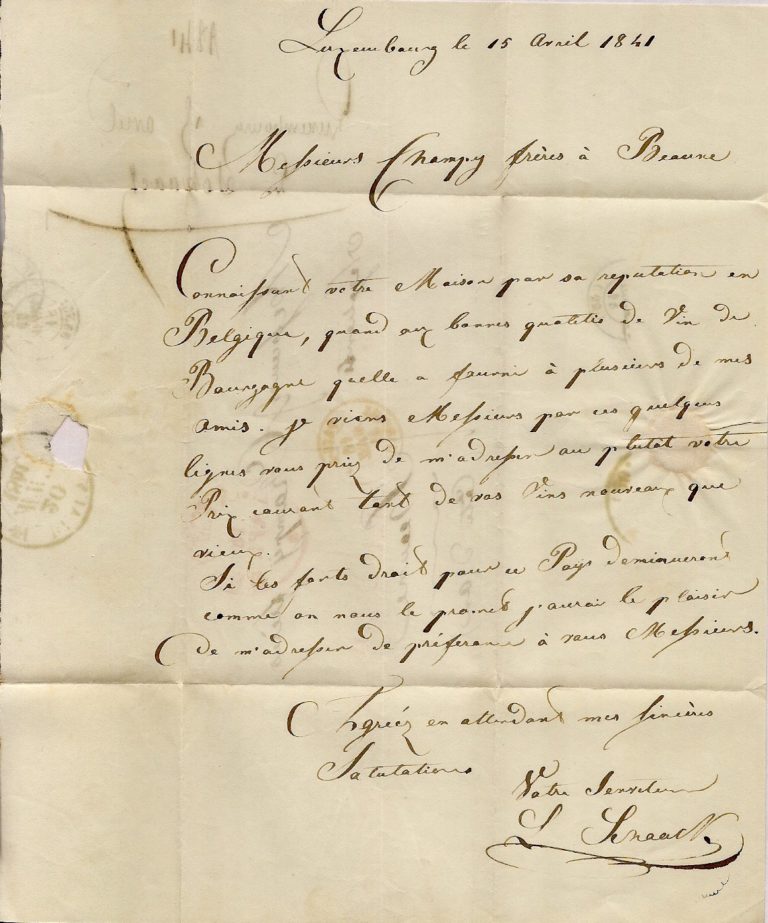 Luxembourg le 15 Avril 1841
Messieurs Champy frères à Beaune
Connaissant votre Maison par sa reputation en
Belgique, quand aux bonnes qualités de Vin de
Bourgogne quelle a fourni à plusieurs de mes
amis. je viens Messieurs par ces quelques
lignes vous priez de m'adresser au plutot votre
Prix courant tant de vos Vins nouveaux que
vieux.
Si les forts droit pour ce Pays deminueront
comme on nous le promet j'aurai le plaisir
de m'adresser de préférence à vous Messieurs.
Agréez en attendant mes sincères
Salutations
Votre Serviteur